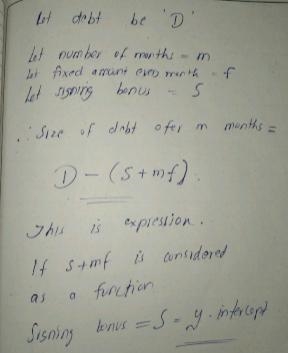 Let debt be 'D'
Let number of months = m
Let fixed amount every month = f
Let signing bonus = S
∴ Size of debt after m months =
D - (S + mf).
This is expression.
If S+mf is considered
as a function
Signing bonus = S = y-intercept